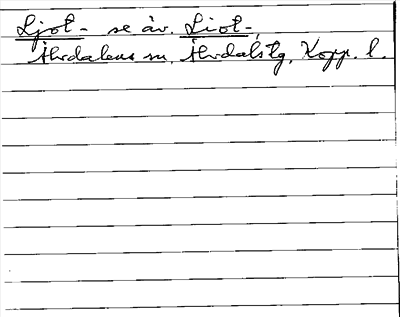 Ljot- se äv. Liot-,
Älvdalens sn, Älvdals tg, Kopp. l.